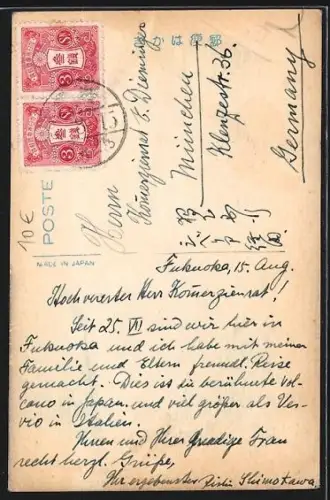 郵便はかき
Herrn
Kom̄erzienrat E. Dieminger
München
Klenzestr. 36
Germany
10€
POSTE
MADE IN JAPAN
Fukuoka, 15. Aug.
Hochverester Herr Kom̄erzienrat!
Seit 25. VII sind wir hier in
Fukuoka und ich habe mit meiner
Familie und Eltern freundl. Reise
gemacht. Dies ist zu berühmte Vol-
cano in Japan und viel größer als Vesu-
vio in Italien.
Ihnen und Ihrer Gnedige Frau
recht herzl. Grüße,
Ihr ergebenster Shimokawa